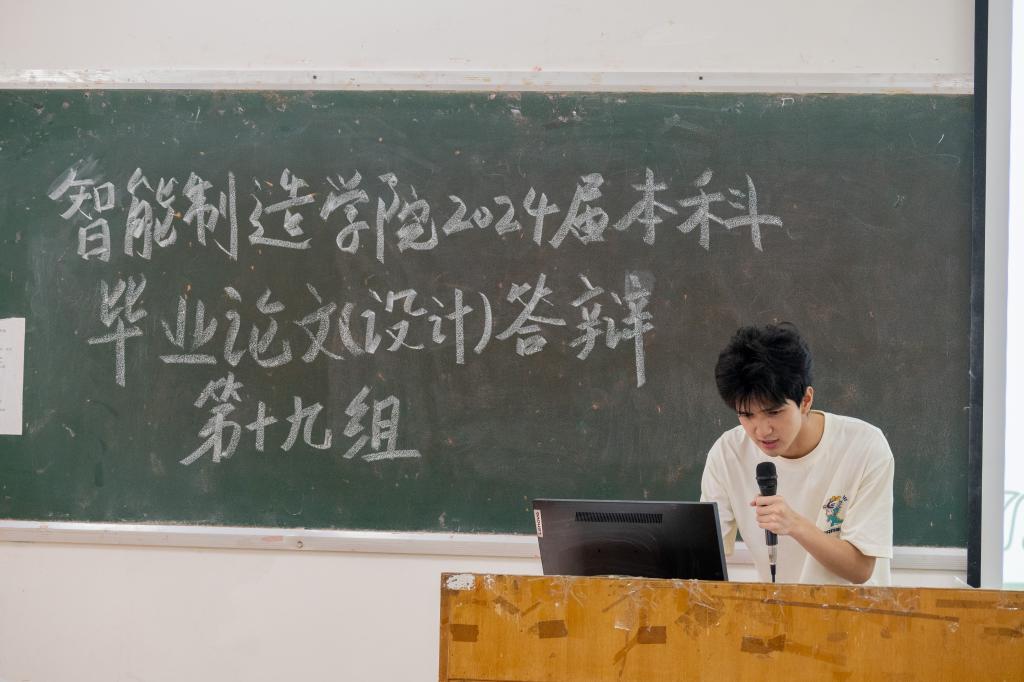 智能制造学院2024届本科
毕业论文(设计)答辩
第十九组
Lenovo